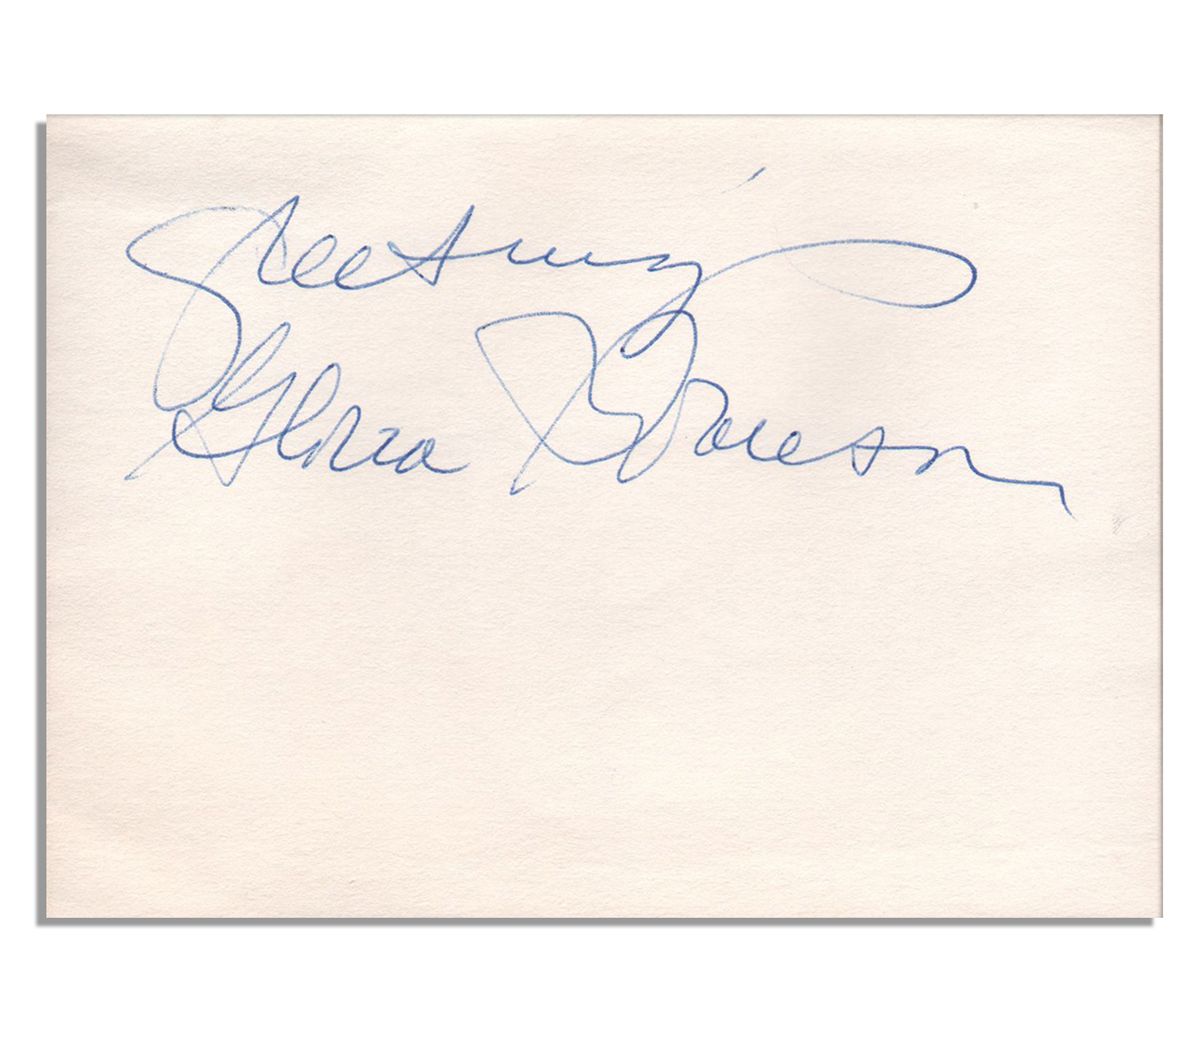 Greetings
Gloria Swanson